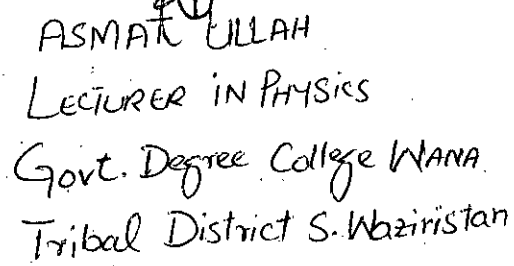 ASMAT ULLAH
LECTURER IN PHYSICS
Govt. Degree College WANA
Tribal District S. Waziristan